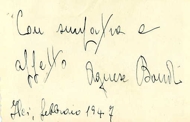 Con simpatia e
affetto Agnese Bondi
febbraio 1947